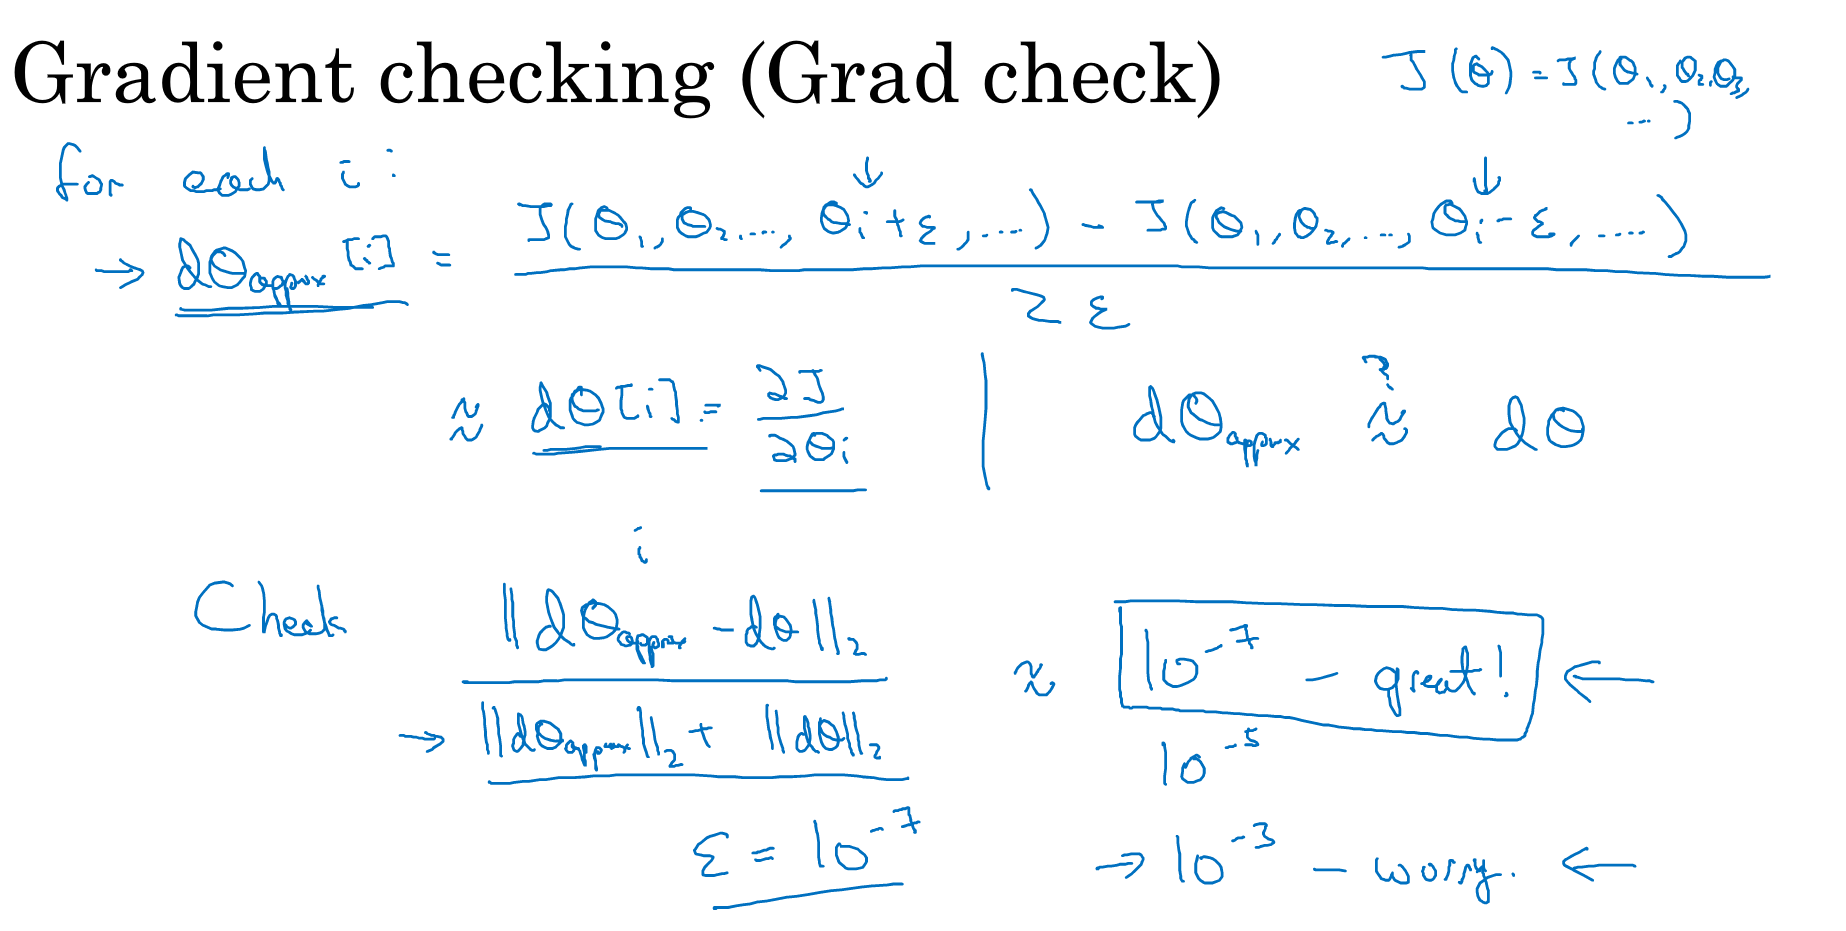 Gradient checking (Grad check)
J(θ) = J(θ₁, θ₂, θ₃, ...)
for each i :
→ dθapprox[i] = (J(θ₁, θ₂, ..., θᵢ+ε, ...) - J(θ₁, θ₂, ..., θᵢ-ε, ...)) / 2ε
≈ dθ[i] = ∂J/∂θᵢ | dθapprox ≈? dθ
i
Check ‖dθapprox - dθ‖₂ / (‖dθapprox‖₂ + ‖dθ‖₂) ≈ 10⁻⁷ - great! ←
10⁻⁵
ε = 10⁻⁷ → 10⁻³ - worry. ←